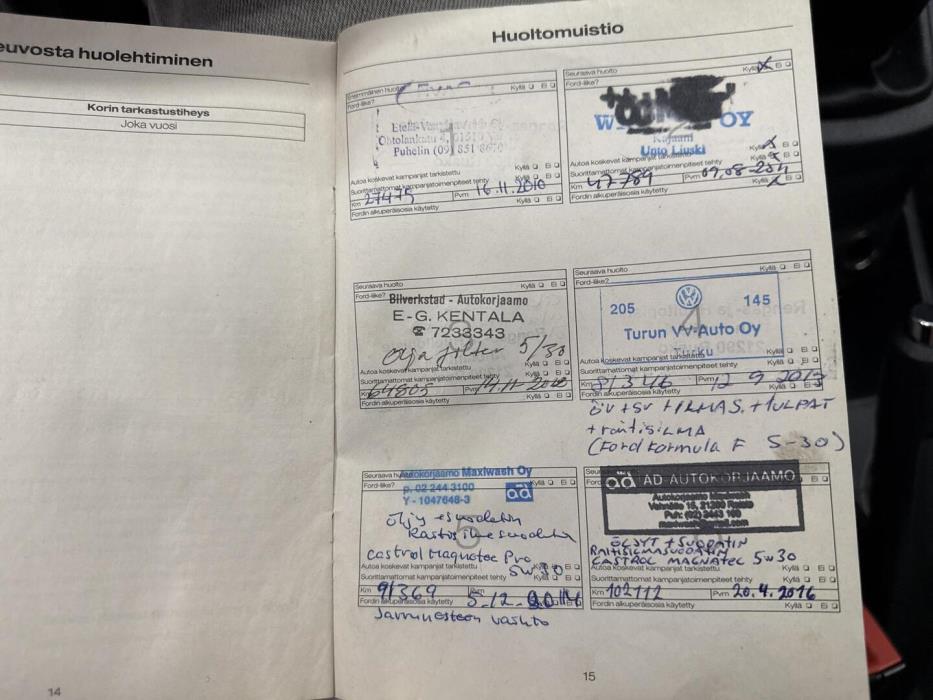 euvosta huolehtiminen
Korin tarkastustiheys
Joka vuosi
14
Huoltomuistio
Ensimmäinen huolto Kyllä Ei
Ford-liike?
Puhelin (09) 851
Autoa koskevat kampanjat tarkastettu Kyllä Ei
Suorittamattomat kampanjatoimenpiteet tehty Kyllä Ei
Km 27475 Pvm 16.11.2010
Fordin alkuperäisosia käytetty Kyllä Ei
Seuraava huolto Kyllä Ei
Ford-liike?
OY
Kajaani
Unto Liuski
Autoa koskevat kampanjat tarkastettu Kyllä Ei
Suorittamattomat kampanjatoimenpiteet tehty Kyllä Ei
Km 47789 Pvm 09.08-2011
Fordin alkuperäisosia käytetty Kyllä Ei
Seuraava huolto Kyllä Ei
Ford-liike?
Bilverkstad - Autokorjaamo
E-G. KENTALA
☎ 7233343
Olja filter 5/30
Autoa koskevat kampanjat tarkastettu Kyllä Ei
Suorittamattomat kampanjatoimenpiteet tehty Kyllä Ei
Km 64805 Pvm
Fordin alkuperäisosia käytetty Kyllä Ei
Seuraava huolto Kyllä Ei
Ford-liike?
205 145
Turun VV-Auto Oy
Turku
Autoa koskevat kampanjat tarkastettu Kyllä Ei
Suorittamattomat kampanjatoimenpiteet tehty Kyllä Ei
Km 81346 Pvm 12 9 2013
Fordin alkuperäisosia käytetty Kyllä Ei
ÖV + SV + ILMAS. + TULPAT
+ raitisILMA
(Ford Formula F 5-30)
Seuraava huolto Kyllä Ei
Ford-liike?
Autokorjaamo Maxiwash Oy
p. 02 244 3100
Y - 1047648-3
ad
5
Öljy + suodatin
Raitisilmasuodatin
Castrol Magnatec Pro
5W30
Autoa koskevat kampanjat tarkastettu Kyllä Ei
Suorittamattomat kampanjatoimenpiteet tehty Kyllä Ei
Km 91369 Pvm 5.12.2014
Fordin alkuperäisosia käytetty Kyllä Ei
Jarrunesteen vaihto
ad AD-AUTOKORJAAMO
Autokorjaamo Maxiwash
ÖLJYT + SUODATIN
RAITISILMASUODATIN
CASTROL MAGNATEC 5W30
Autoa koskevat kampanjat tarkastettu Kyllä Ei
Suorittamattomat kampanjatoimenpiteet tehty Kyllä Ei
Km 102112 Pvm 20.4.2016
Fordin alkuperäisosia käytetty Kyllä Ei
15